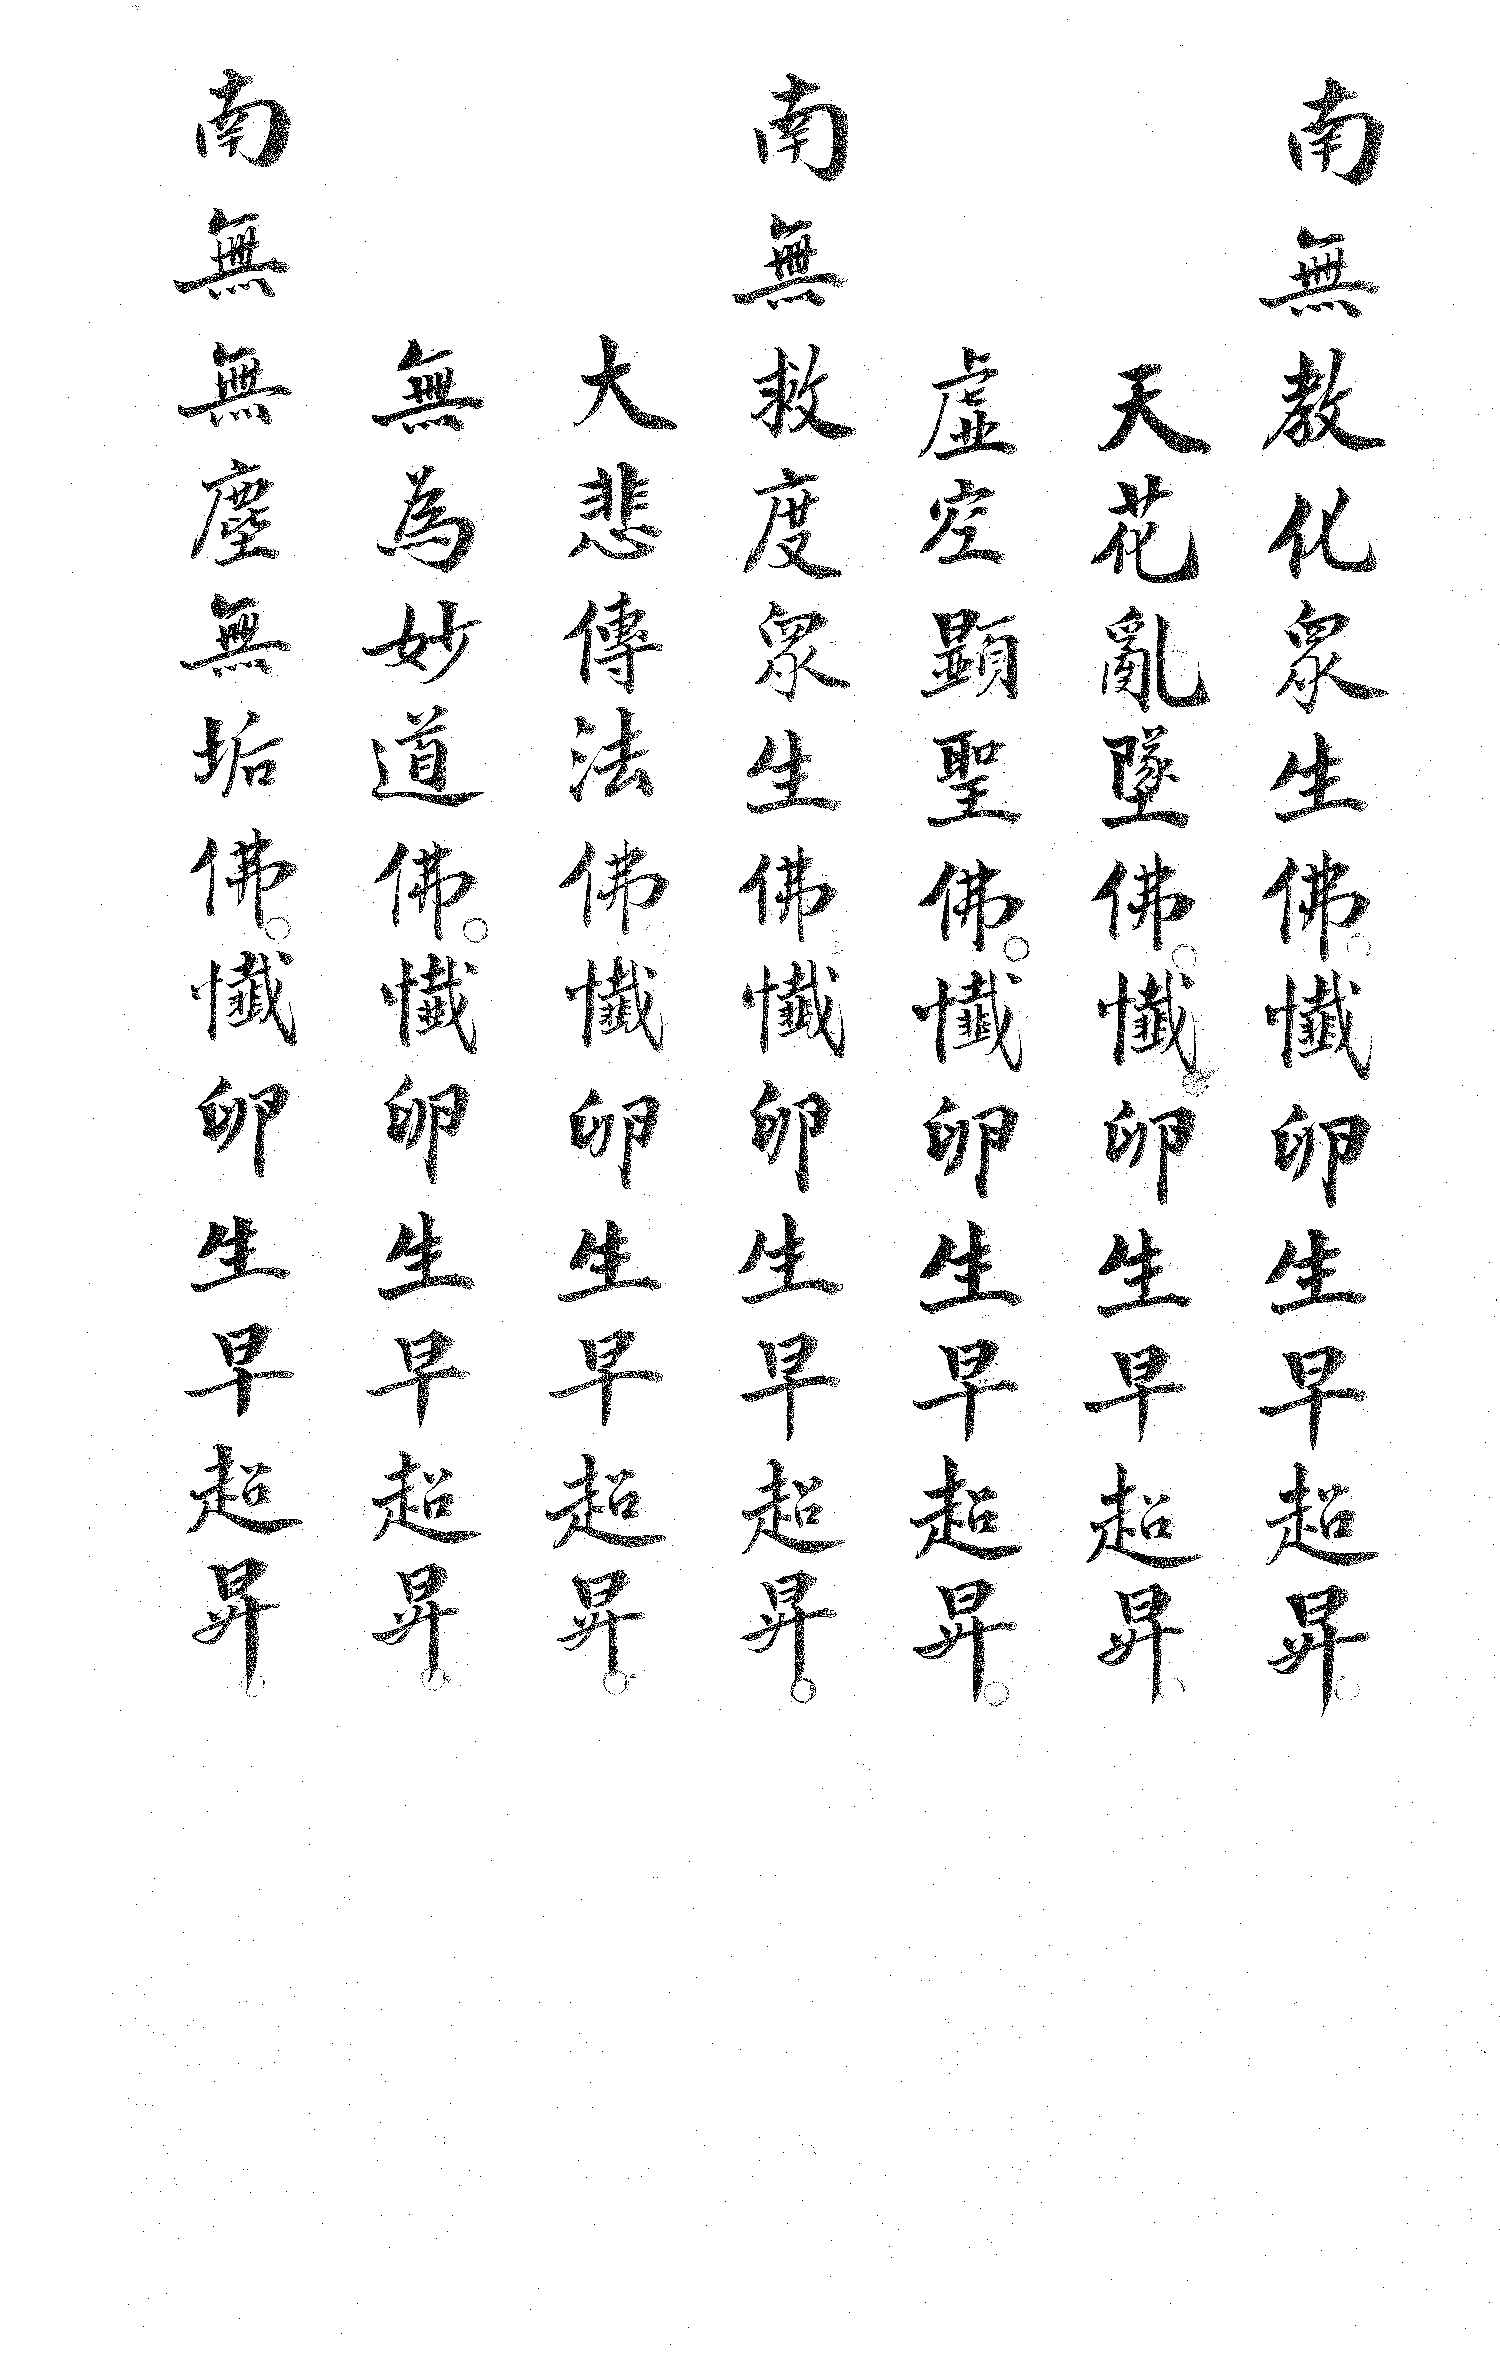 南無教化眾生佛。懺卵生早超昇。
天花亂墜佛。懺卵生早超昇。
虛空顯聖佛。懺卵生早超昇。
南無救度眾生佛。懺卵生早超昇。
大悲傳法佛懺卵生早超昇。
無為妙道佛。懺卵生早超昇。
南無無塵無垢佛。懺卵生早超昇。